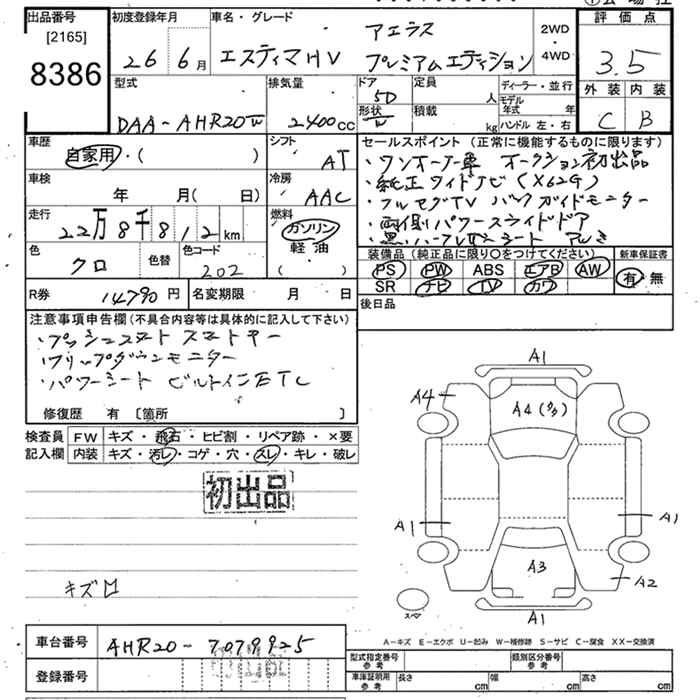 出品番号
[2165]
8386
初度登録年月
26年 6月
車名・グレード
アエラス
エスティマHV プレミアムエディション
2WD
・
4WD
評価点
3.5
外装 内装
C B
型式
DAA-AHR20W
排気量
2400cc
ドア
5D
形状
W
定員
人
積載
kg
ディーラー・並行
モデル年式 年
ハンドル 左・右
車歴
自家用・( )
シフト
AT
車検
年 月( 日)
冷房
AAC
走行
22万8千812km
燃料
ガソリン
軽油
( )
色
クロ
色替
色コード
202
R券
14790円
名変期限 月 日
セールスポイント(正常に機能するものに限ります)
・ワンオーナー車 オークション初出品
・純正ワイドナビ(X62G)
・フルセグTV バックガイドモニター
・両側パワースライドドア
・黒ハーフレザーシート アルミ
装備品(純正品に限り○をつけてください)
PS PW ABS エアB AW
SR ナビ TV カワ
新車保証書
有・無
後日品
注意事項申告欄(不具合内容等は具体的に記入して下さい)
・プッシュスタート スマートキー
・フリップダウンモニター
・パワーシート ビルトインETC
修復歴 有〔箇所 〕
検査員記入欄
FW キズ・飛石・ヒビ割・リペア跡・×要
内装 キズ・汚レ・コゲ・穴・スレ・キレ・破レ
初出品
キズ
A1
A4
A4
A1
A1
A3
A2
A1
スペア
A-キズ E-エクボ U-凹み W-補修跡 S-サビ C-腐食 XX-交換済
車台番号
AHR20-7079925
登録番号
型式指定番号 参考
類別区分番号 参考
車庫証明用 参考
長さ cm
幅 cm
高さ cm